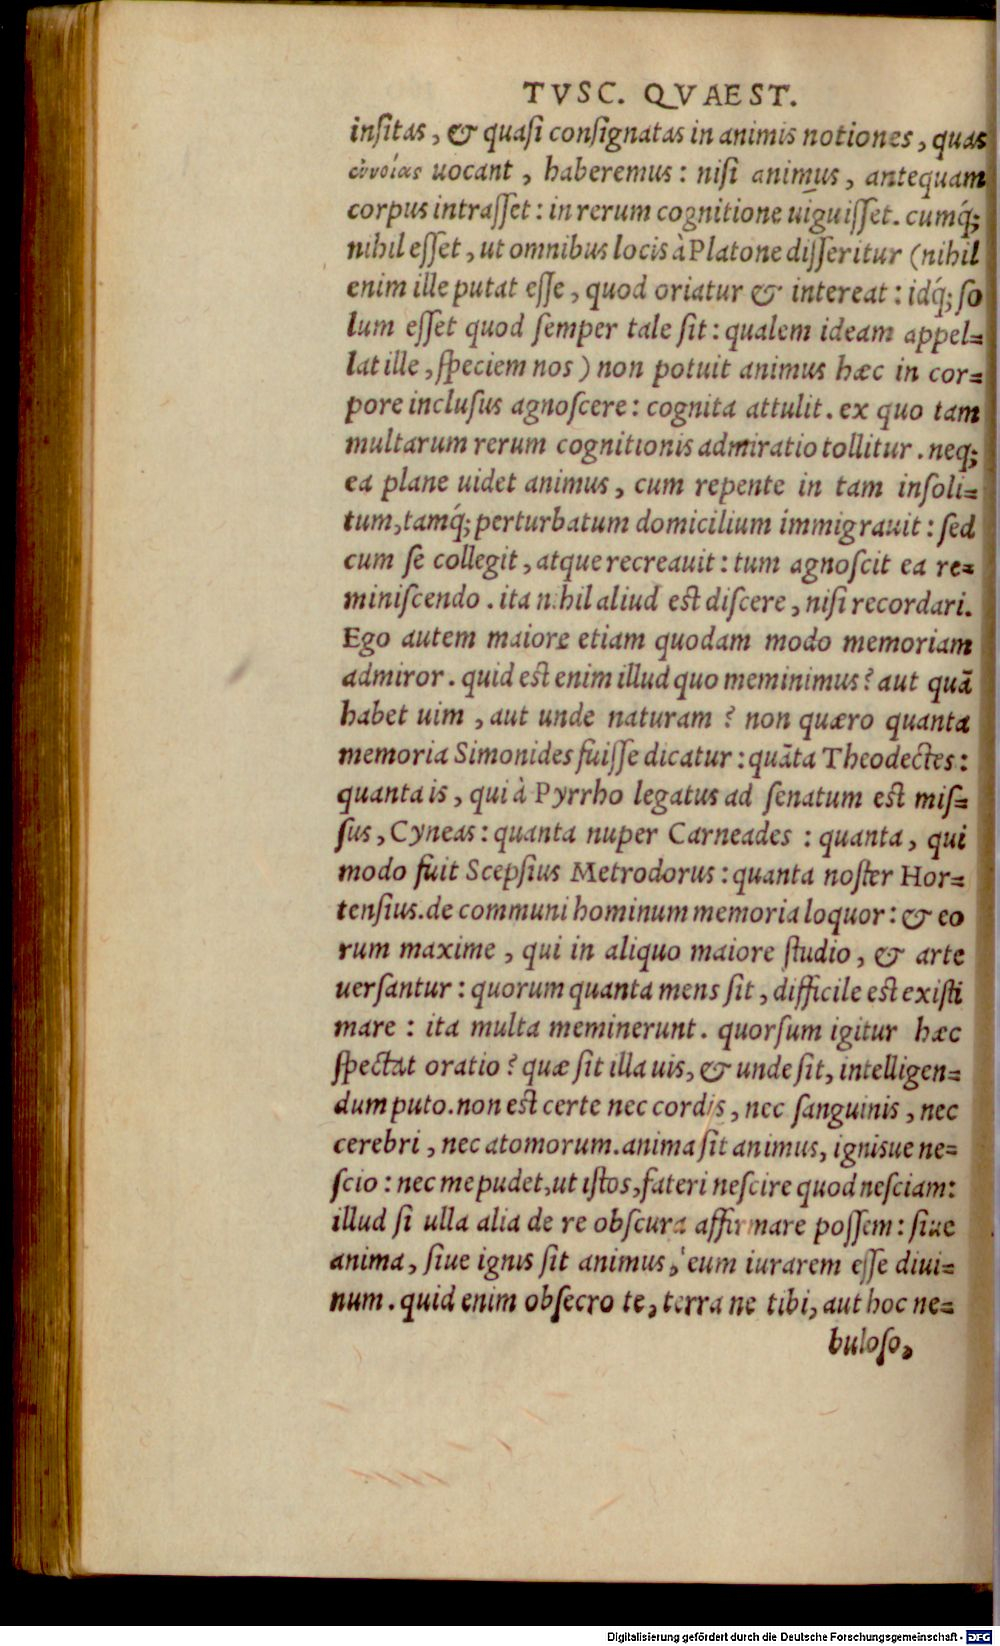 TVSC. QVAEST.
inſitas, & quaſi conſignatas in animis notiones, quas
ἐννοίας uocant, haberemus: niſi animus, antequam
corpus intraſſet: in rerum cognitione uiguiſſet. cumq́;
nihil eſſet, ut omnibus locis à Platone diſſeritur (nihil
enim ille putat eſſe, quod oriatur & intereat: idq́; ſo
lum eſſet quod ſemper tale ſit: qualem ideam appel=
lat ille, ſpeciem nos) non potuit animus hæc in cor=
pore incluſus agnoſcere: cognita attulit. ex quo tam
multarum rerum cognitionis admiratio tollitur. neq;
ea plane uidet animus, cum repente in tam inſoli=
tum, tamq́; perturbatum domicilium immigrauit: ſed
cum ſe collegit, atque recreauit: tum agnoſcit ea re=
miniſcendo. ita nihil aliud est diſcere, niſi recordari.
Ego autem maiore etiam quodam modo memoriam
admiror. quid est enim illud quo meminimus? aut quã
habet uim, aut unde naturam? non quæro quanta
memoria Simonides fuiſſe dicatur: quãta Theodectes:
quanta is, qui à Pyrrho legatus ad ſenatum est miſ=
ſus, Cyneas: quanta nuper Carneades: quanta, qui
modo fuit Scepſius Metrodorus: quanta noſter Hor=
tenſius. de communi hominum memoria loquor: & eo
rum maxime, qui in aliquo maiore ſtudio, & arte
uerſantur: quorum quanta mens ſit, difficile est exiſti
mare: ita multa meminerunt. quorſum igitur hæc
ſpectat oratio? quæ ſit illa uis, & unde ſit, intelligen=
dum puto. non est certe nec cordis, nec ſanguinis, nec
cerebri, nec atomorum. anima ſit animus, ignisue ne=
ſcio: nec me pudet, ut iſtos, fateri neſcire quod neſciam:
illud ſi ulla alia de re obſcura affirmare poſſem: ſiue
anima, ſiue ignis ſit animus, eum iurarem eſſe diui=
num. quid enim obſecro te, terra ne tibi, aut hoc ne=
buloſo,
Digitalisierung gefördert durch die Deutsche Forschungsgemeinschaft - DFG